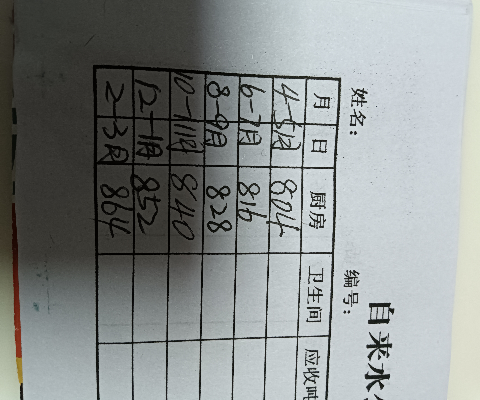 自来水
姓名： 编号：
月 日 厨房 卫生间 应收吨
4-5月 804
6-7月 816
8-9月 828
10-11月 840
12-1月 852
2-3月 864